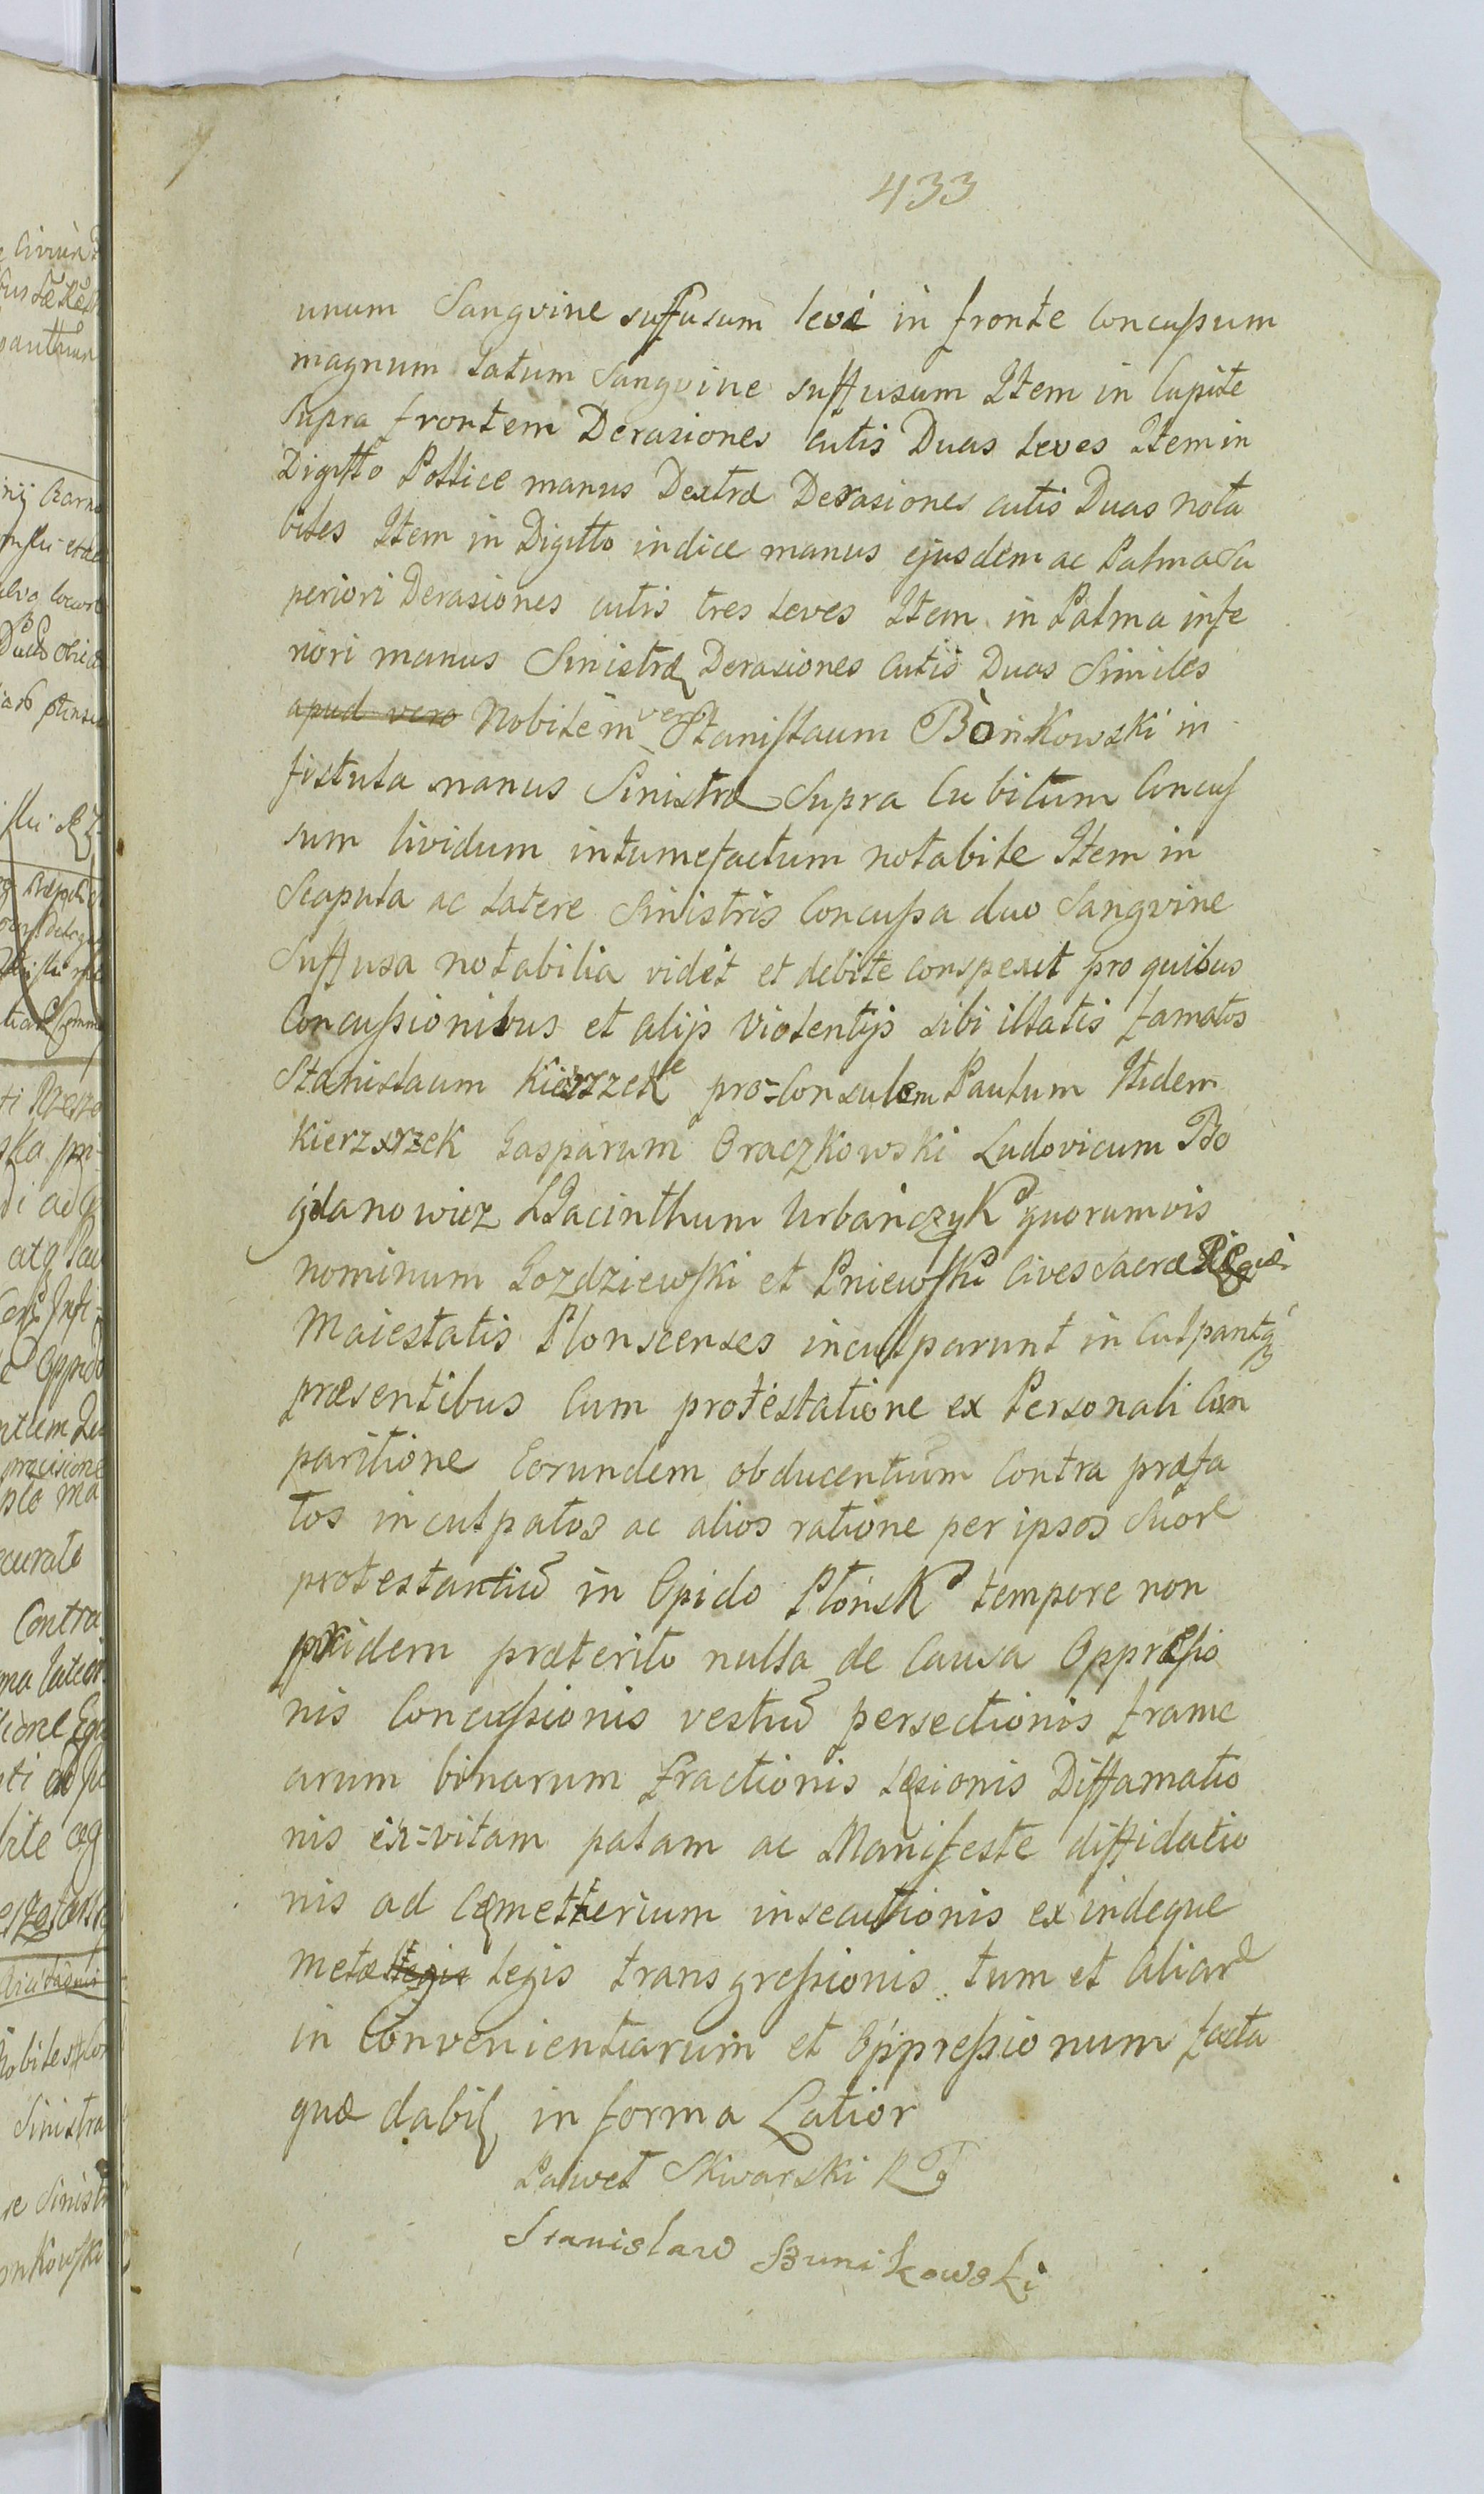 433
unum Sangvine suffusum leve in fronte Concussum
magnum latum Sangvine suffusum Item in Capite
Supra frontem Derasiones Cutis Duas leves Item in
Digitto Pollice manus Dextræ Derasiones cutis Duas nota
biles Item in Digitto indice manus ejusdem ac Palma Su
periori Derasiones cutis tres leves Item in Palma infe
riori manus Sinistræ Derasiones Cutis Duas Similes
apud vero Nobilem vero Stanislaum Bońkowski in
fistula manus Sinistræ Supra Cubitum Concus
sum lividum intumefactum notabile Item in
Scapula ac latere Sinistris Concussa duo Sangvine
Suffusa notabilia vidit et debite conspexit pro quibus
Concussionibus et alijs violentijs sibi illatis famatos
Stanislaum Kierzek pro=Consulem Paulum Itidem
Kierzszek Gasparum Oraczkowski Ludovicum Bo
gdanowicz Hyacinthum Urbańczyk quorumvis
nominum Gozdziewski et Pniewski Cives Sacræ Regiæ
Maiestatis Plonscenses inculparunt in Culpantq
præsentibus Cum protestatione ex Personali Com
paritione Eorundem obducentium Contra præfa
tos inculpatos ac alios ratione per ipsos Suor
protestantiu in Opido Płońsk tempore non
pridem præterito nulla de Causa Oppressio
nis Concussionis vestiu persectionis frame
arum binarum fractionis læsionis Diffamatio
nis in=vitam palam ac Manifeste diffidatio
nis ad Cæmetterium insecutionis exindeque
metæ legis legis transgressionis tum et Aliar
in Convenientiarum et Oppressionum facta
quæ dabil in forma Latior
Paweł Skwarski RG
Stanislaw Bunikowski